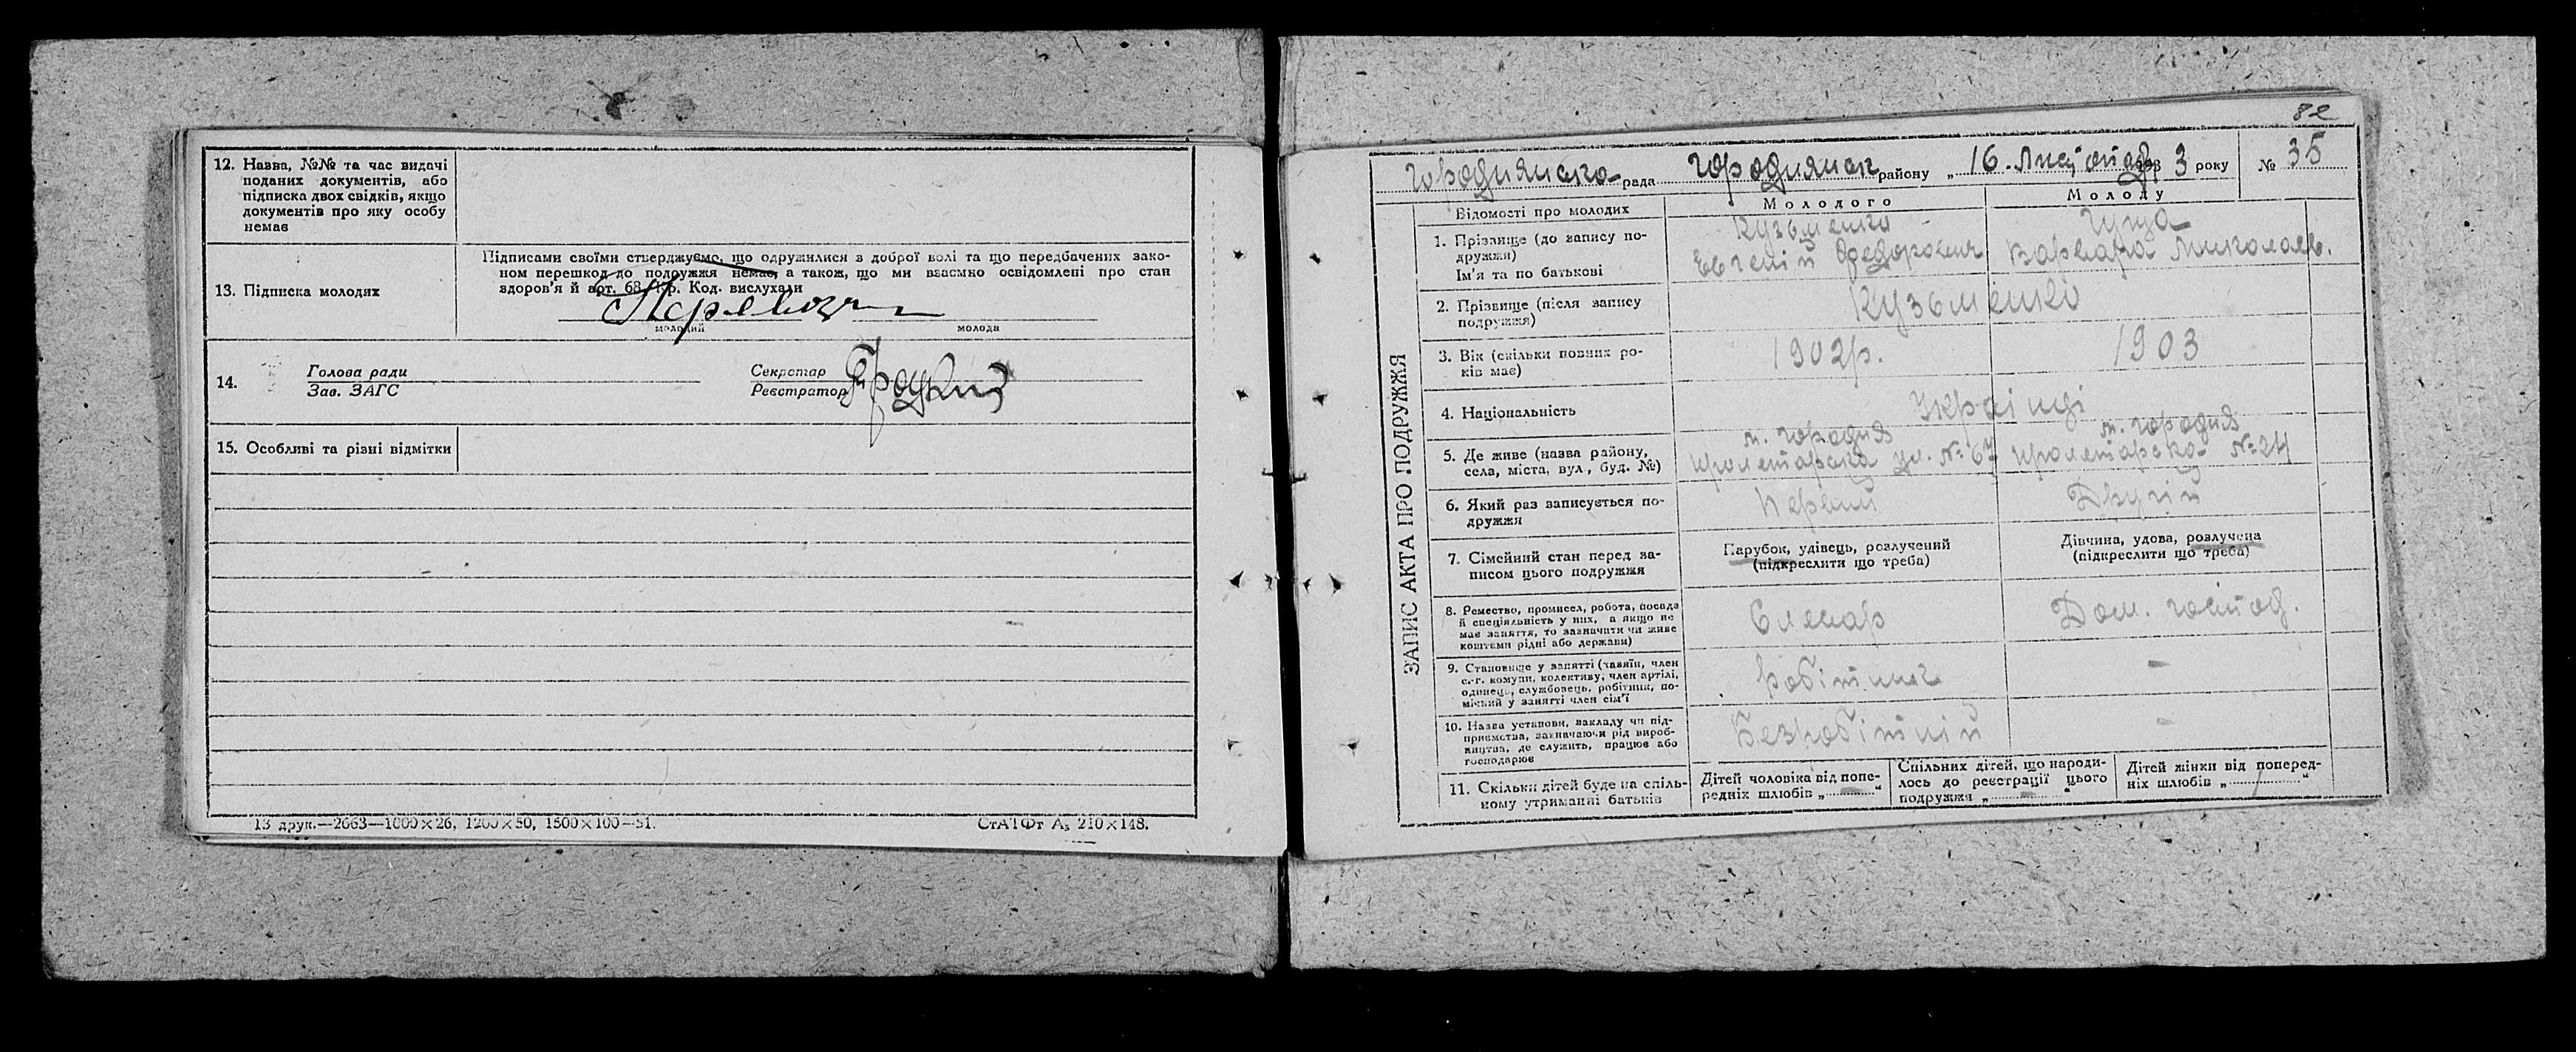 12. Назва, №№ та час видачі
поданих документів, або
підписка двох свідків, якщо
документів про яку особу
немає
13. Підписка молодях
Підписами своїми стверджуємо, що одружилися з доброї волі та що передбачених зако-
ном перешкод до подружжя немає, а також, що ми взаємно освідомлені про стан
здоров'я й арт. 68 Кр. Код. вислухали
молодий молода
14.
Голова ради
Зав. ЗАГС
Секретар
Реєстратор
15. Особливі та різні відмітки
13 друк.—2663—1000×26, 1200×50, 1500×100—31.
СтАТФт А₅ 210×148.
82
Городнянска рада Городнянск району „ 16. Листопад 193 3 року № 35
ЗАПИС АКТА ПРО ПОДРУЖЖЯ
Відомості про молодих
Молодого
Молоду
1. Прізвище (до запису по-
дружжя)
Ім'я та по батькові
Кузьменко
Евгеній Федорович
Гуща
Варвара Миколаєв.
2. Прізвище (після запису
подружжя)
Кузьменко
3. Вік (скільки повних ро-
ків має)
1902р.
1903
4. Національність
Українці
5. Де живе (назва району,
села, міста, вул., буд. №)
м. Городня
пролетарска ул. № 67
м. Городня
пролетарска № 24
6. Який раз записується по-
дружжя
Первий
Другій
7. Сімейний стан перед за-
писом цього подружжя
Парубок, удівець, розлучений
(підкреслити що треба)
Дівчина, удова, розлучена
(підкреслити що треба)
8. Ремество, промисел, робота, посада
й спеціяльність у них, а якщо не
має заняття, то зазначити чи живе
коштами рідні або держави)
Слясар
Дом. господ.
9. Становище у занятті (хазяїн, член
с.-г. комуни, колективу, член артілі,
одинець, службовець, робітник, по-
мічний у занятті член сім'ї
робітник
–
10. Назва установи, закладу чи під-
приємства, зазначаючи рід вироб-
ництва, де служить, працює або
господарює
Безробітній
–
11. Скільки дітей буде на спіль-
ному утриманні батьків
Дітей чоловіка від попе-
редніх шлюбів „ – “
Спільних дітей, що народи-
лось до реєстрації цього
подружжя „ – “
Дітей жінки від поперед-
ніх шлюбів „ “